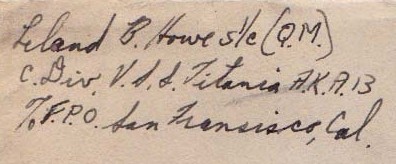 Leland B. Howe s1/c (Q.M.)
C. Div. U.S.S. Titania A.K.A. 13
℅ F.P.O. San Fransisco, Cal.